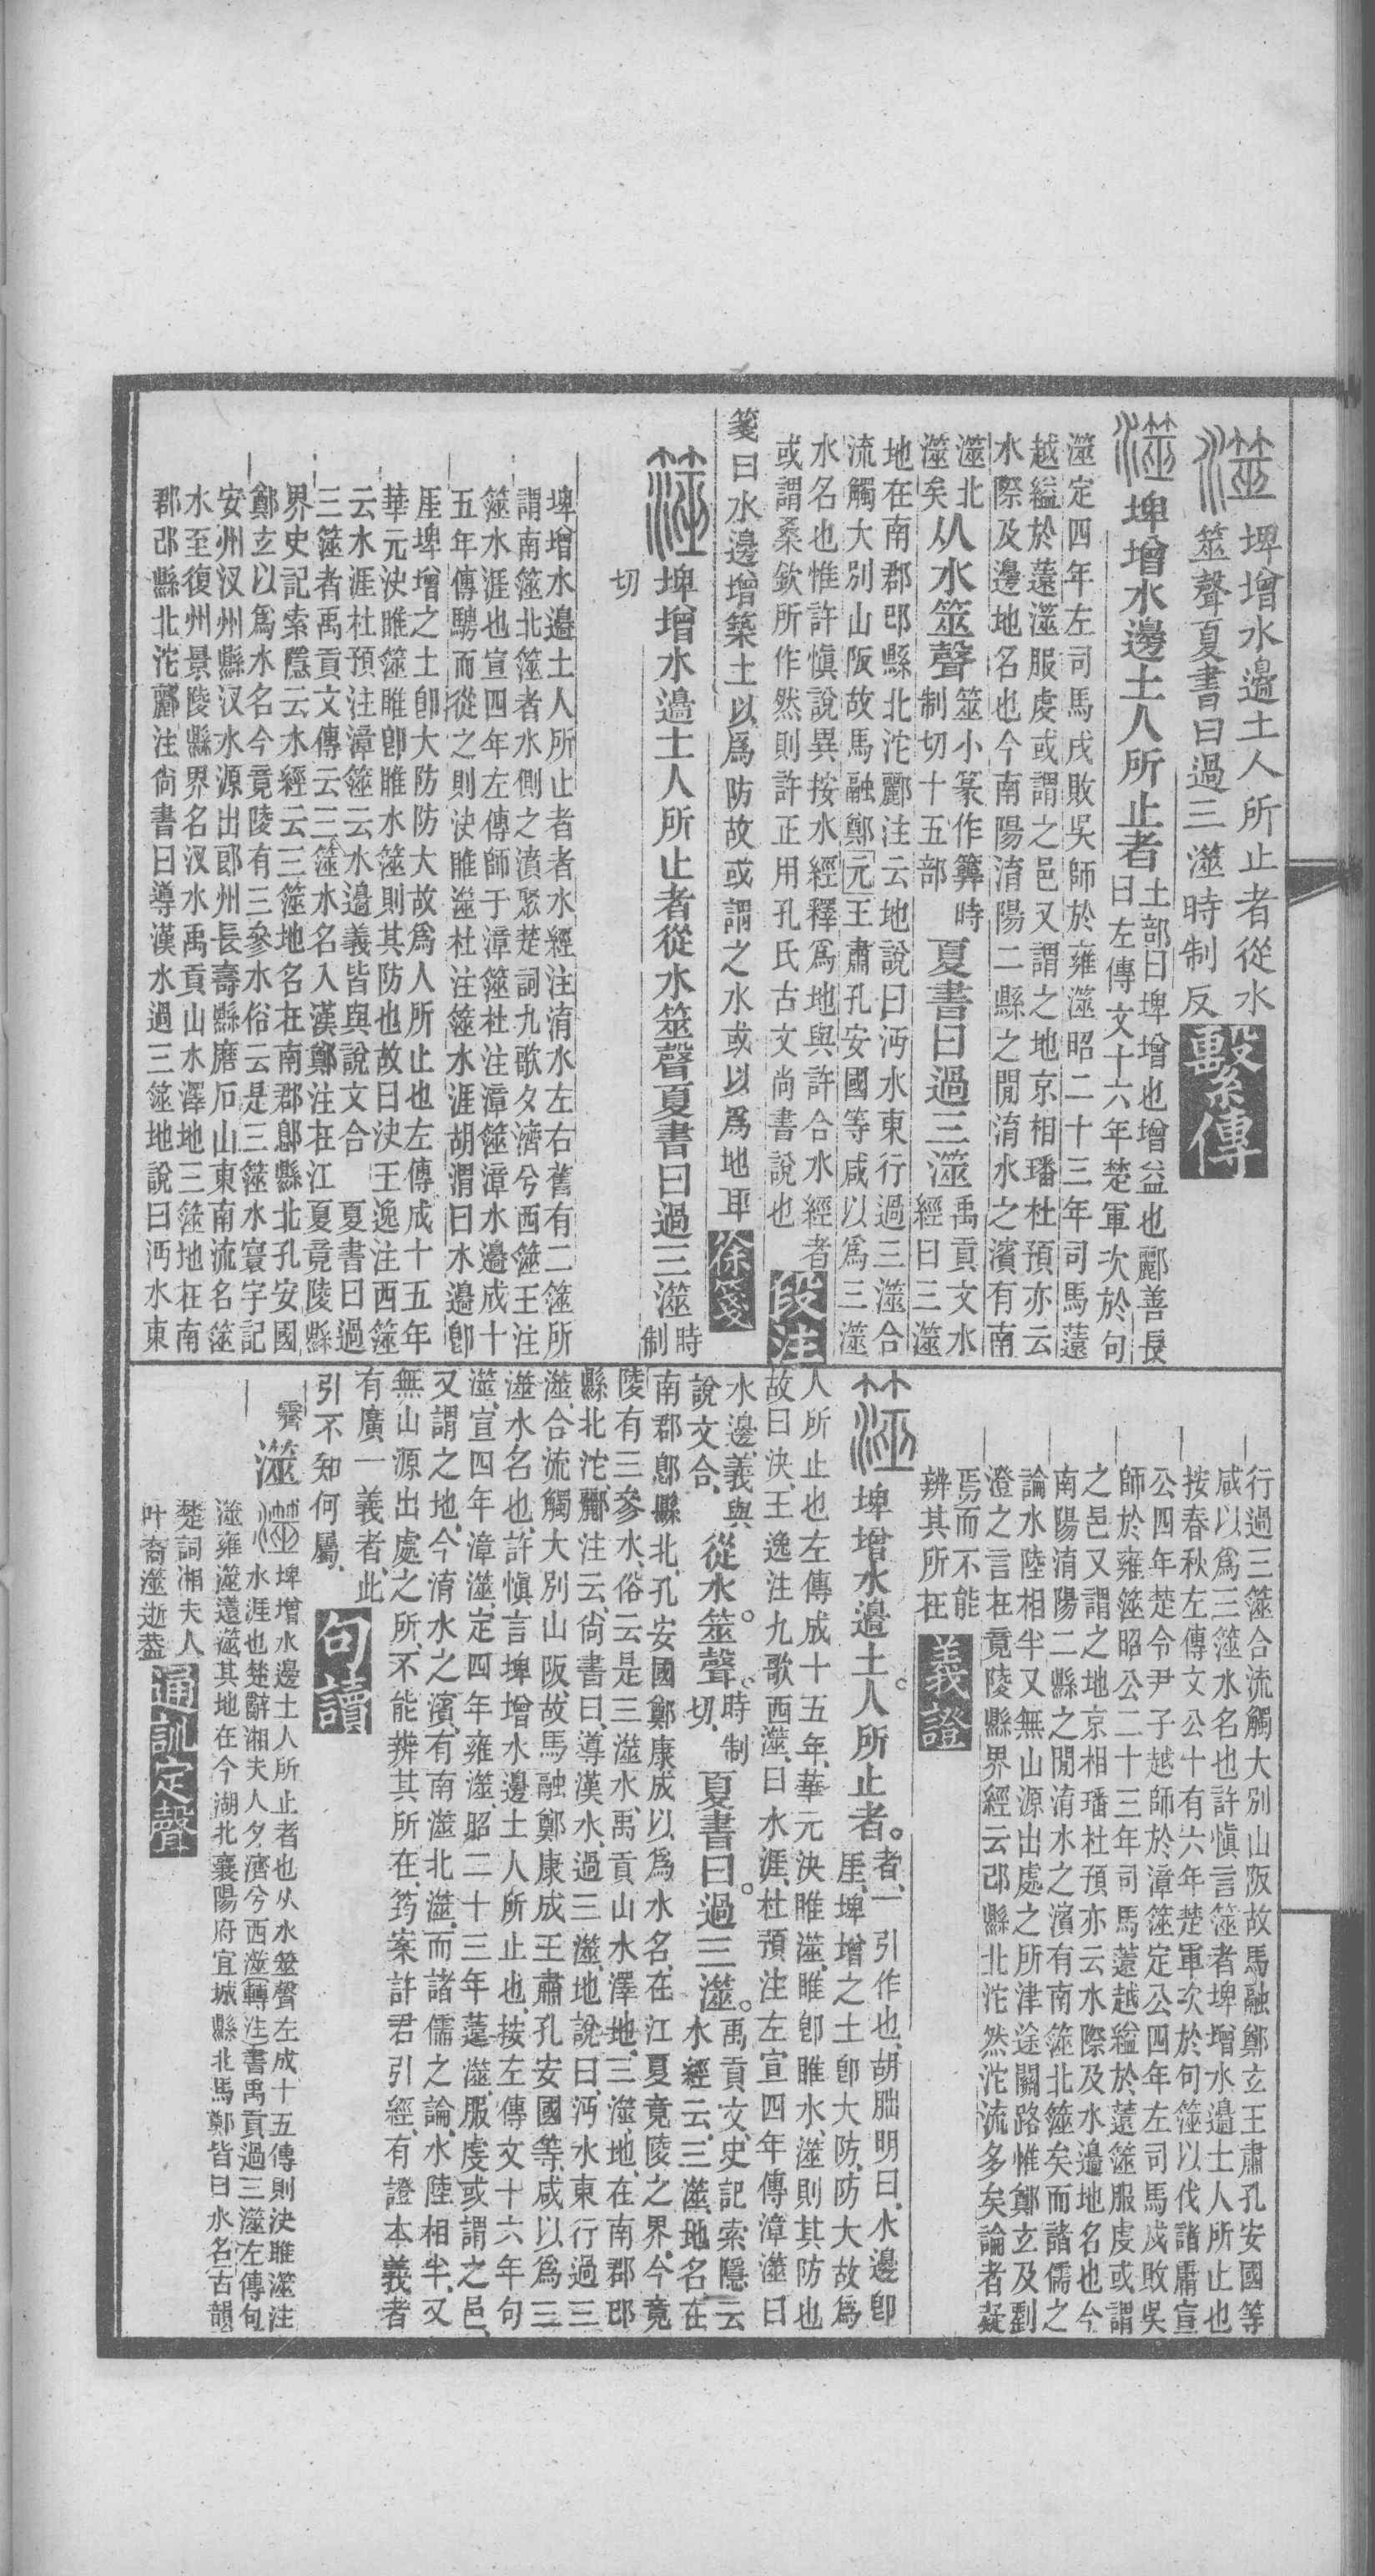 埤增水邊土人所止者從水
筮聲夏書曰過三澨時制反
繫傳
埤增水邊土人所止者
土部曰埤增也增益也酈善長
曰左傳文十六年楚軍次於句
澨定四年左司馬戌敗吳師於雍澨昭二十三年司馬薳
越縊於薳澨服虔或謂之邑又謂之地京相璠杜預亦云
水際及邊地名也今南陽淯陽二縣之閒淯水之濱有南
澨北
澨矣
从水筮聲
筮小篆作簭時
制切十五部
夏書曰過三澨
禹貢文水
經曰三澨
地在南郡邔縣北沱酈注云地說曰沔水東行過三澨合
流觸大別山阪故馬融鄭元王肅孔安國等咸以爲三澨
水名也惟許愼說異按水經釋爲地與許合水經者
或謂桑欽所作然則許正用孔氏古文尚書說也
段注
箋曰水邊增築土以爲防故或謂之水或以爲地耳
徐箋
埤增水邊土人所止者從水筮聲夏書曰過三澨
時制
切
埤增水邊土人所止者者水經注淯水左右舊有二澨所
謂南澨北澨者水側之濆聚楚詞九歌夕濟兮西澨王注
澨水涯也宣四年左傳師于漳澨杜注漳澨漳水邊成十
五年傳騁而從之則決睢澨杜注澨水涯胡渭曰水邊卽
厓埤增之土卽大防防大故爲人所止也左傳成十五年
華元決睢澨睢卽睢水澨則其防也故曰決王逸注西澨
云水涯杜預注漳澨云水邊義皆與說文合 夏書曰過
三澨者禹貢文傳云三澨水名入漢鄭注在江夏竟陵縣
界史記索隱云水經云三澨地名在南郡邔縣北孔安國
鄭玄以爲水名今竟陵有三參水俗云是三澨水寰宇記
安州汊州縣汊水源出郢州長壽縣磨石山東南流名澨
水至復州景陵縣界名汊水禹貢山水澤地三澨地在南
郡邔縣北沱酈注尙書曰導漢水過三澨地說曰沔水東
行過三澨合流觸大別山阪故馬融鄭玄王肅孔安國等
咸以爲三澨水名也許愼言澨者埤增水邊土人所止也
按春秋左傳文公十有六年楚軍次於句澨以伐諸庸宣
公四年楚令尹子越師於漳澨定公四年左司馬戌敗吳
師於雍澨昭公二十三年司馬薳越縊於薳澨服虔或謂
之邑又謂之地京相璠杜預亦云水際及水邊地名也今
南陽淯陽二縣之閒淯水之濱有南澨北澨矣而諸儒之
論水陸相半又無山源出處之所津途關路惟鄭玄及劉
澄之言在竟陵縣界經云邔縣北沱然沱流多矣論者疑
焉而不能
辨其所在
義證
埤增水邊土人所止者。
者、一引作也、胡朏明曰、水邊卽
厓、埤增之土卽大防、防大故爲
人所止也左傳成十五年、華元決睢澨、睢卽睢水、澨則其防也
故曰決、王逸注九歌西澨、曰水涯、杜預注左宣四年傳漳澨曰
水邊、義與
說文合、
從水。筮聲。
時制
切、
夏書曰。過三澨。
禹貢文、史記索隱云
水經云、三澨、地名、在
南郡邔縣北、孔安國鄭康成以爲水名、在江夏竟陵之界、今竟
陵有三參水、俗云是三澨水、禹貢山水澤地、三澨、地、在南郡邔
縣北沱、酈注云、尙書曰、導漢水、過三澨、地說曰、沔水東行過三
澨、合流觸大別山阪、故馬融鄭康成王肅孔安國等、咸以爲三
澨水名也、許愼言埤增水邊土人所止也、按左傳文十六年句
澨、宣四年漳澨、定四年雍澨、昭二十三年薳澨、服虔或謂之邑、
又謂之地、今淯水之濱、有南澨北澨、而諸儒之論、水陸相半、又
無山源出處之所、不能辨其所在、筠案許君引經、有證本義者
有廣一義者、此
引不知何屬、
句讀
霽
澨
埤增水邊土人所止者也从水筮聲左成十五傳則決睢澨注
水涯也楚辭湘夫人夕濟兮西澨轉注書禹貢過三澨左傳句
澨雍澨薳澨其地在今湖北襄陽府宜城縣北馬鄭皆曰水名古韻
楚詞湘夫人
叶裔澨逝蓋
通訓定聲